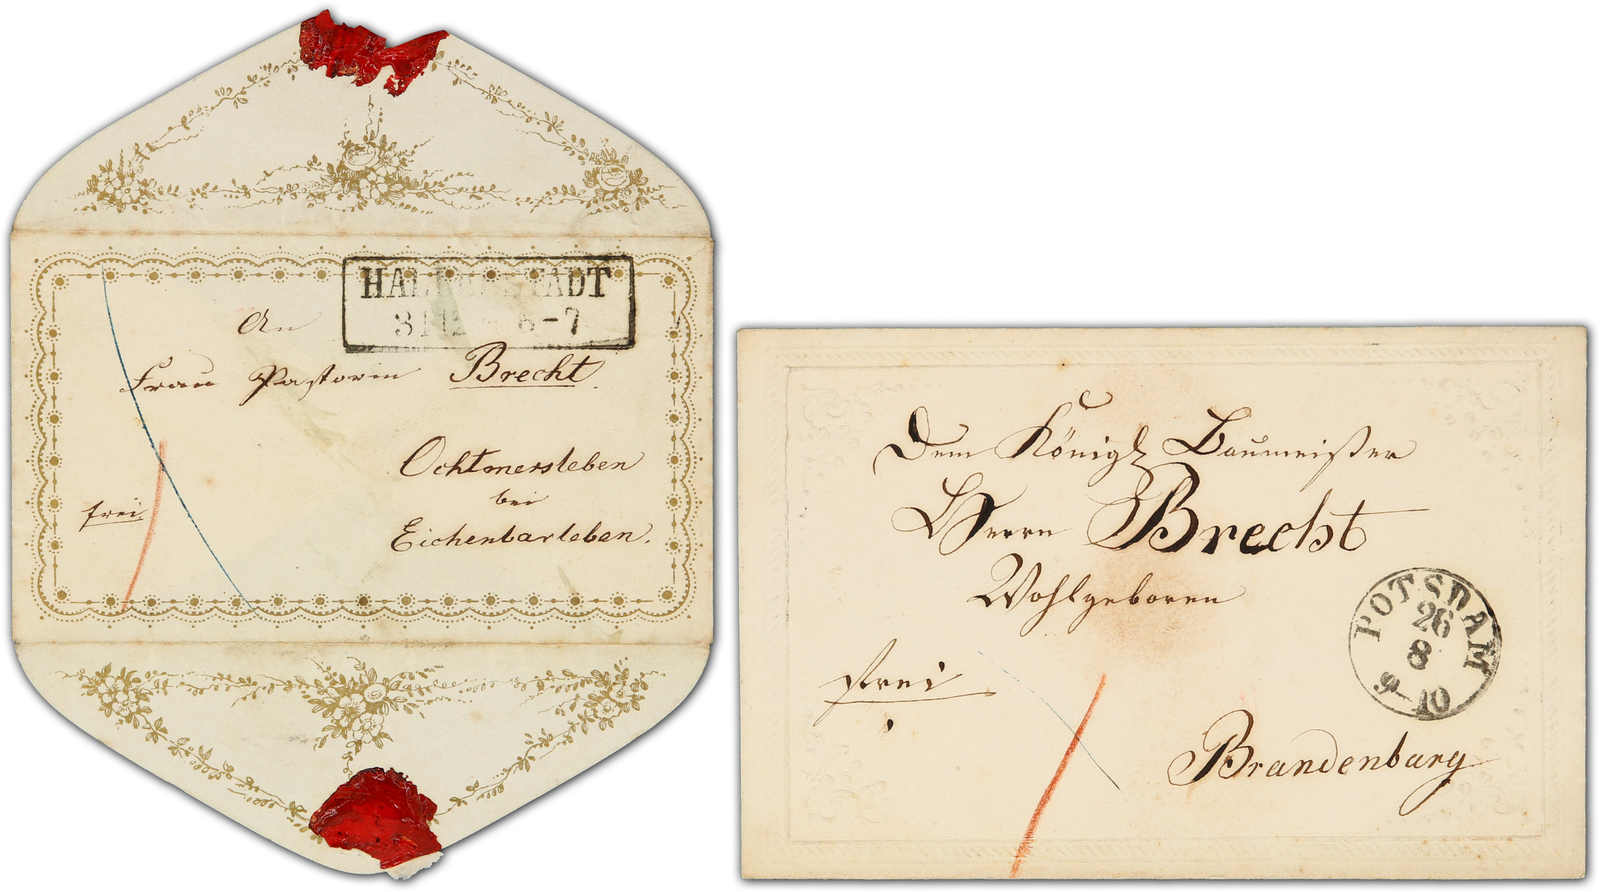 HALBERSTADT
31 12 6-7
An
Frau Pastorin Brecht.
Ochtmersleben
bei
Eichenbarleben.
frei
Dem Königl Baumeister
Herrn Brecht
Wohlgeboren
frei
POTSDAM
26
8
9-10
Brandenburg